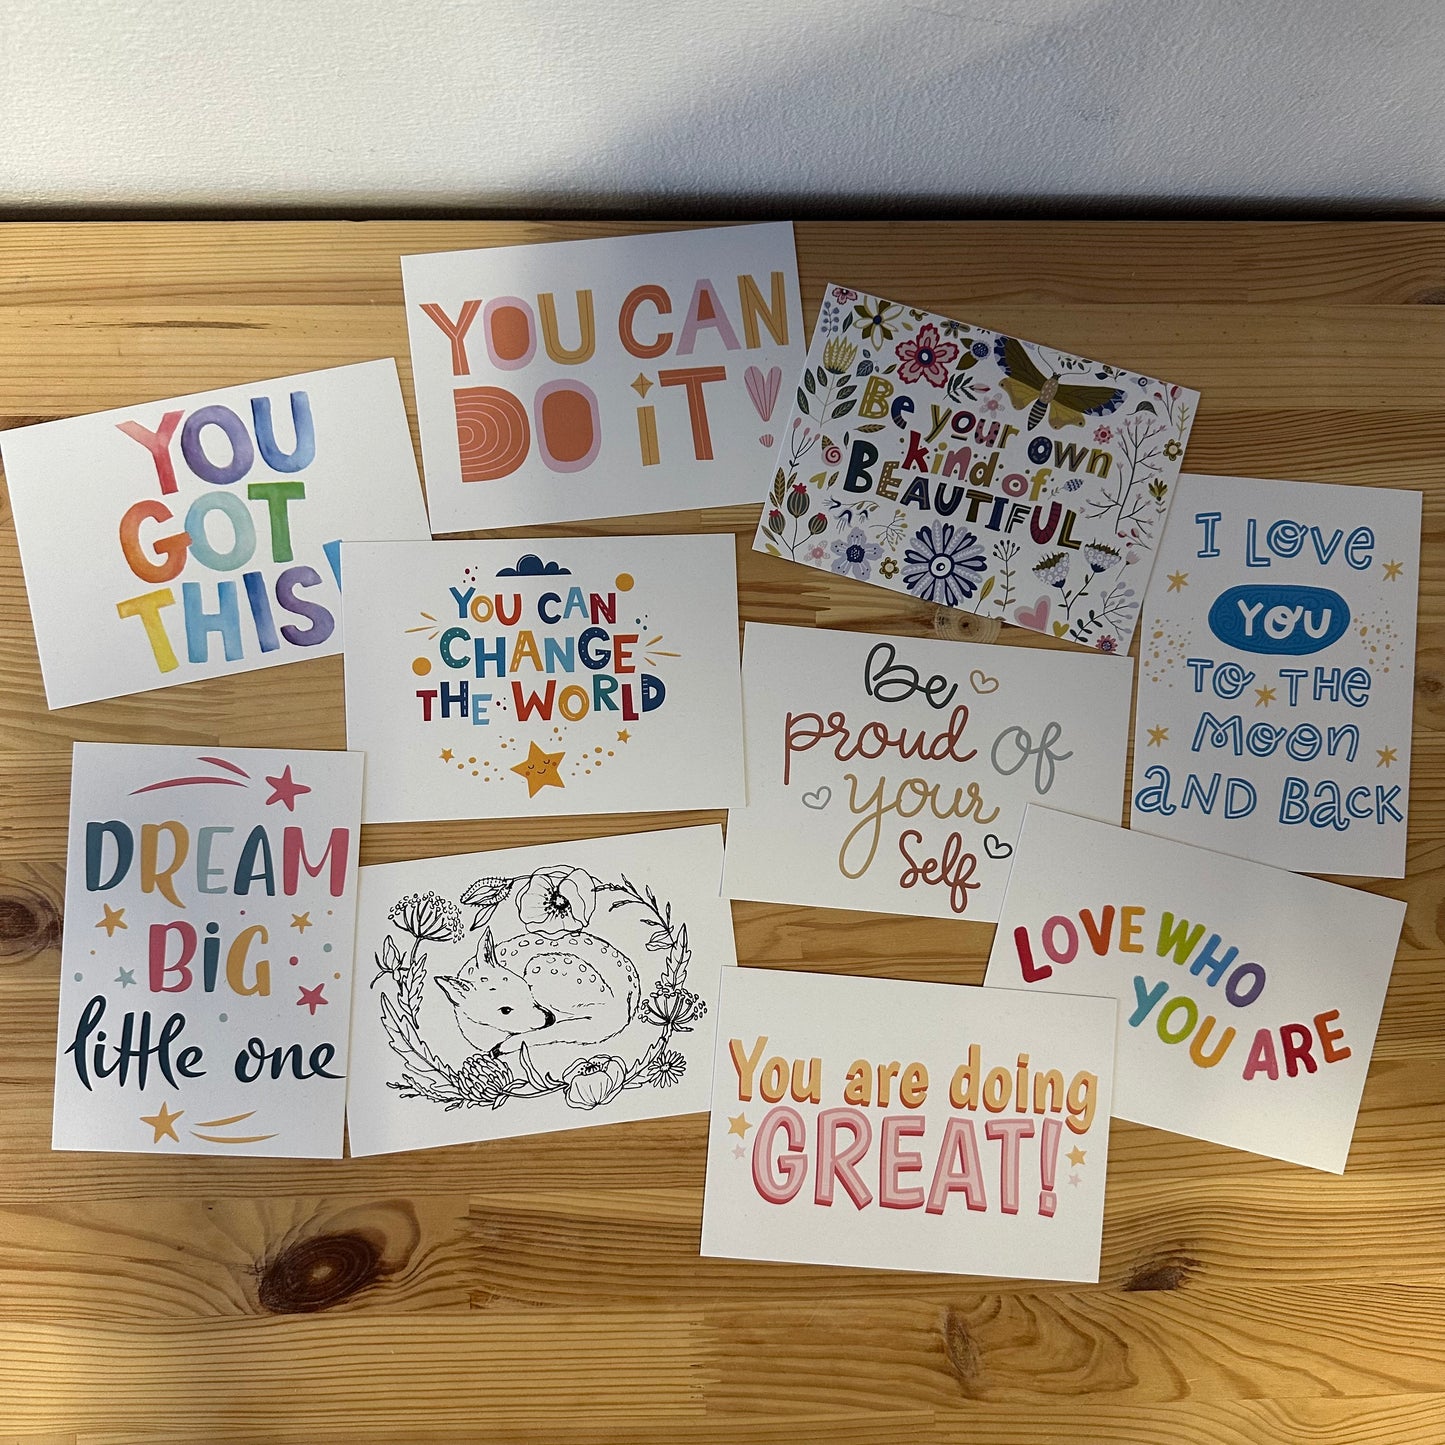 YOU CAN
DO iT!
YOU
GOT
THIS!
Be your own
kind of
BEAUTIFUL
I LOVE
YOU
TO THE
MOON
AND BACK
YOU CAN
CHANGE
THE WORLD
Be
proud of
your
Self
DREAM
BiG
little one
LOVE WHO
YOU ARE
You are doing
GREAT!